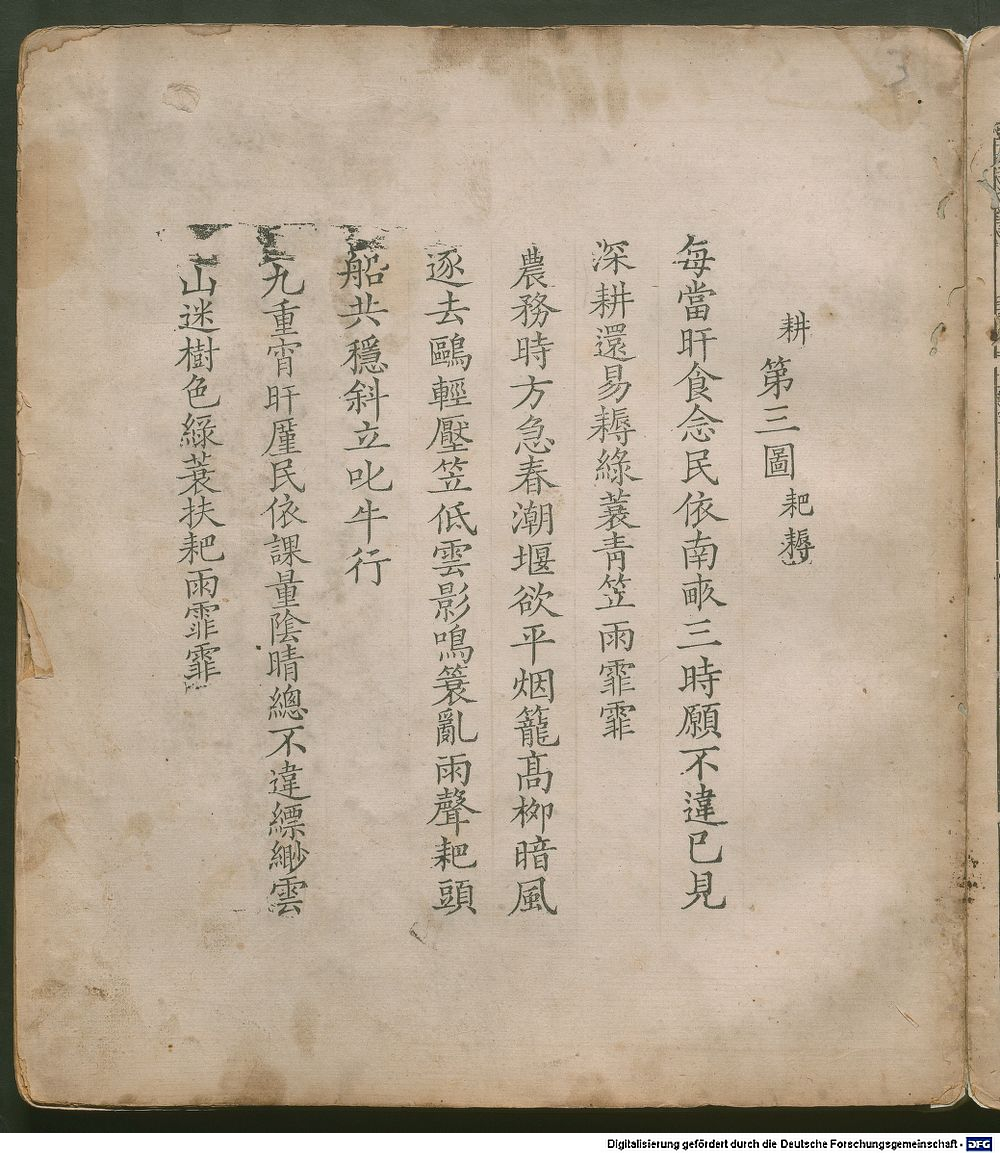 耕
第三圖
耙耨
每當旰食念民依南畝三時願不違已見
深耕還易耨綠蓑青笠雨霏霏
農務時方急春潮堰欲平烟籠髙栁暗風
逐去鷗輕壓笠低雲影鳴簑亂雨聲耙頭
船共穩斜立叱牛行
九重宵旰廑民依課量陰晴總不違縹緲雲
山迷樹色綠蓑扶耙雨霏霏
Digitalisierung gefördert durch die Deutsche Forschungsgemeinschaft - DFG